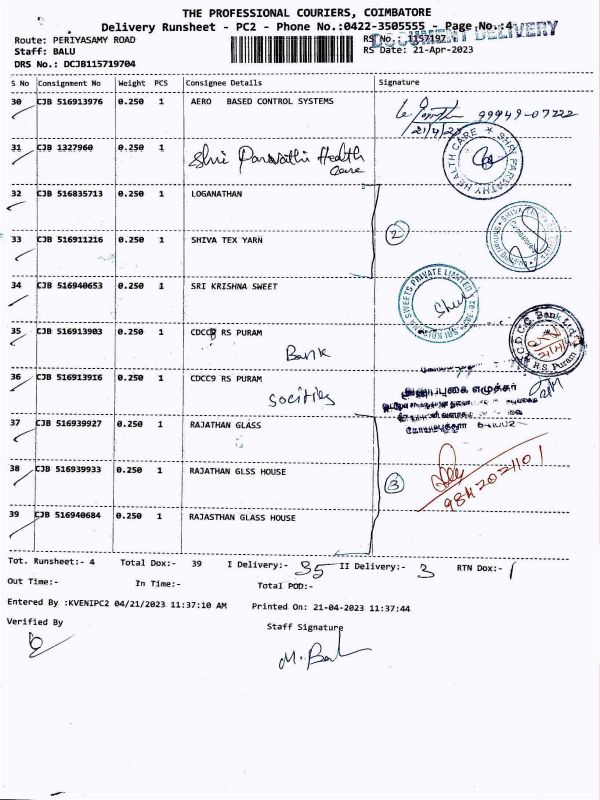 THE PROFESSIONAL COURIERS, COIMBATORE
Delivery Runsheet - PC2 - Phone No.:0422-3505555 - Page No.:4
DOCUMENT DELIVERY
Route: PERIYASAMY ROAD RS No.: 1157197
Staff: BALU RS Date: 21-Apr-2023
DRS No.: DCJB115719704
S No Consignment No Weight PCS Consignee Details Signature
30 CJB 516913976 0.250 1 AERO BASED CONTROL SYSTEMS
99949-07222
21/4/23
31 CJB 1327960 0.250 1 Shri Parvathi Health Care
SHRI PARVATHY HEALTH CARE
32 CJB 516835713 0.250 1 LOGANATHAN
2
33 CJB 516911216 0.250 1 SHIVA TEX YARN
34 CJB 516940653 0.250 1 SRI KRISHNA SWEET
SWEETS PRIVATE LIMITED
35 CJB 516913903 0.250 1 CDCC9 RS PURAM
Bank
R.S. Puram
36 CJB 516913916 0.250 1 CDCC9 RS PURAM
Socities
அணுப்புகை எழுத்தர்
37 CJB 516939927 0.250 1 RAJATHAN GLASS
38 CJB 516939933 0.250 1 RAJATHAN GLSS HOUSE
3
9842021101
39 CJB 516940684 0.250 1 RAJASTHAN GLASS HOUSE
Tot. Runsheet:- 4 Total Dox:- 39 I Delivery:- 35 II Delivery:- 3 RTN Dox:- 1
Out Time:- In Time:- Total POD:-
Entered By :KVENIPC2 04/21/2023 11:37:10 AM Printed On: 21-04-2023 11:37:44
Verified By Staff Signature
M. Bal